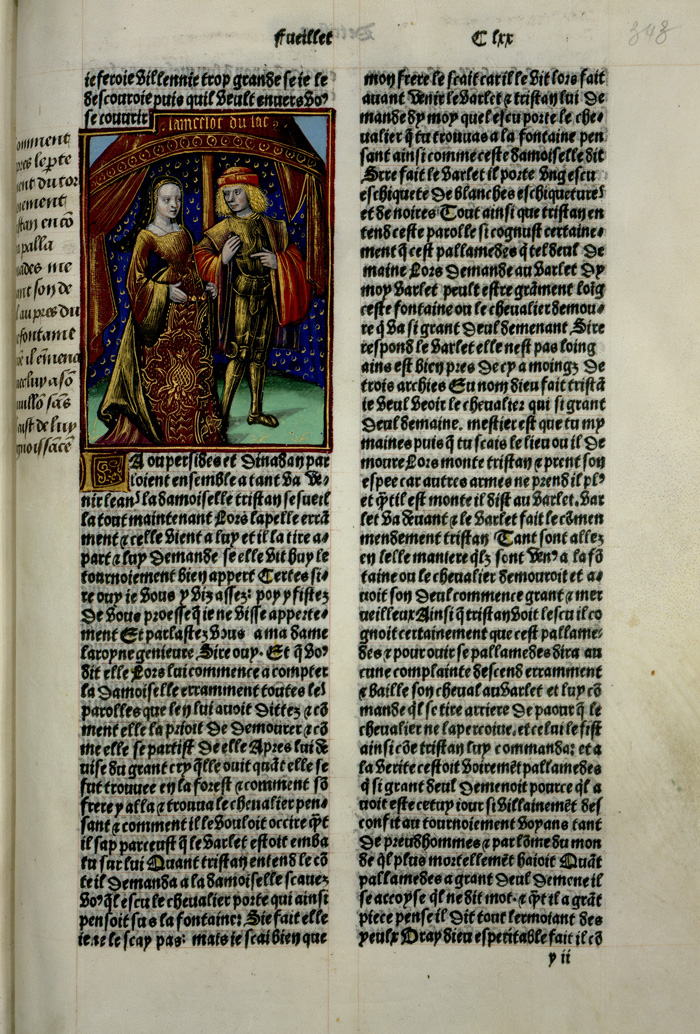 Fueillet
C lxx
348
ie feroie villennie trop grande se ie le
descouroie puis quil veult envers vo9
se couurir
lancelot du lac
omment
res le pte
ent du tor
iement
stan en cō
a palla
ades me
ant son de
l au pres du
e fontaine
il ē mena
uec luy a sō
uillō sās
aust de luy
gnoissāce
La ou persides et dinadan par
loient ensemble a tant va ve-
nir leans la damoiselle tristan se sueil
la tout maintenant Lors lapelle errā
ment ⁊ celle vient a luy et il la tire a
part ⁊ luy demande se elle vit huy le
tournoiement bien appert Certes si-
re ouy ie vous y viz assez: poy y fistez
de vous proesse q̄ ie ne visse apperte-
ment Et parlastez vous a ma dame
la royne genieure, Sire ouy. Et q̄ vo9
dit elle Lors lui commence a compter
la damoiselle erramment toutes les
parolles que len lui auoit dittez ⁊ cō
ment elle la prioit de demourer ⁊ cō
me elle se partist de elle Apres lui de
uise du grant cry q̄lle ouit quāt elle se
fut trouuee en la forest ⁊ comment sō
frere y alla ⁊ trouua le cheualier pen-
sant ⁊ comment il le vouloit occire q̄t
il sap parceust q̄ le varlet estoit emba
tu sur lui Quant tristan entend le cō
te il demanda a la damoiselle scauez
vo9 q̄l escu le cheualier porte qui ainsi
pensoit sus la fontaine: Sie fait elle
ie ne le scay pas: mais ie scai bien que
mon frere le scait car il le vit lors fait
auant venir le varlet ⁊ tristan lui de
mande dy moy quel escu porte le che-
ualier q̄ tu trouuas a la fontaine pen
sant ainsi comme ceste damoiselle dit
Sire fait le varlet il porte vng escu
eschiquete de blanches eschiquetures
et de noires Tout ainsi que tristan en
tend ceste parolle si cognust certaine-
ment q̄ cest pallamedes q̄ tel deul de
maine Lors demande au varlet dy
moy varlet peult estre grāment loīg
ceste fontaine ou le cheualier demou-
re q̄ va si grant deul demenant, Sire
respond le varlet elle nest pas loing
ains est bien pres de cy a moingz de
trois archies En nom dieu fait tristā
ie veul veoir le cheualier qui si grant
deul demaine. mestier est que tu my
maines puis q̄ tu scais le lieu ou il de
moure Lors monte tristan ⁊ prent son
espee car autres armes ne prend il pl9
et q̄t il est monte il dist au varlet. Var
let va deuant ⁊ le varlet fait le cōmen
mendement tristan Tant sont allez
en lelle maniere q̄lz sont ven9 a la fō
taine ou le cheualier demouroit et a-
uoit son deul commence grant ⁊ mer
ueilleux Ainsi q̄ tristan voit lescu il co
gnoit certainement que cest pallame-
des ⁊ pour ouir se pallamedes dira au
cune complainte descend erramment
⁊ baille son cheual au varlet et luy cō
mande q̄l se tire arriere de paour q̄ le
cheualier ne lapercoiue. et celui le fist
ainsi cōe tristan luy commanda: et a
la verite cestoit voiremēt pallamedes
q̄ si grant deul demenoit pource q̄l a
uoit este cetuy iour si villainemēt des
confit au tournoiement voyans tant
de preudhommes ⁊ par lōme du mon
de q̄l plus mortellemēt haioit Quāt
pallamedes a grant deul demene il
se accoyse q̄l ne dit mot. ⁊ q̄t il a grāt
piece pense il dit tout lermoiant des
yeulx Vray dieu esperitable fait il cō
y ii